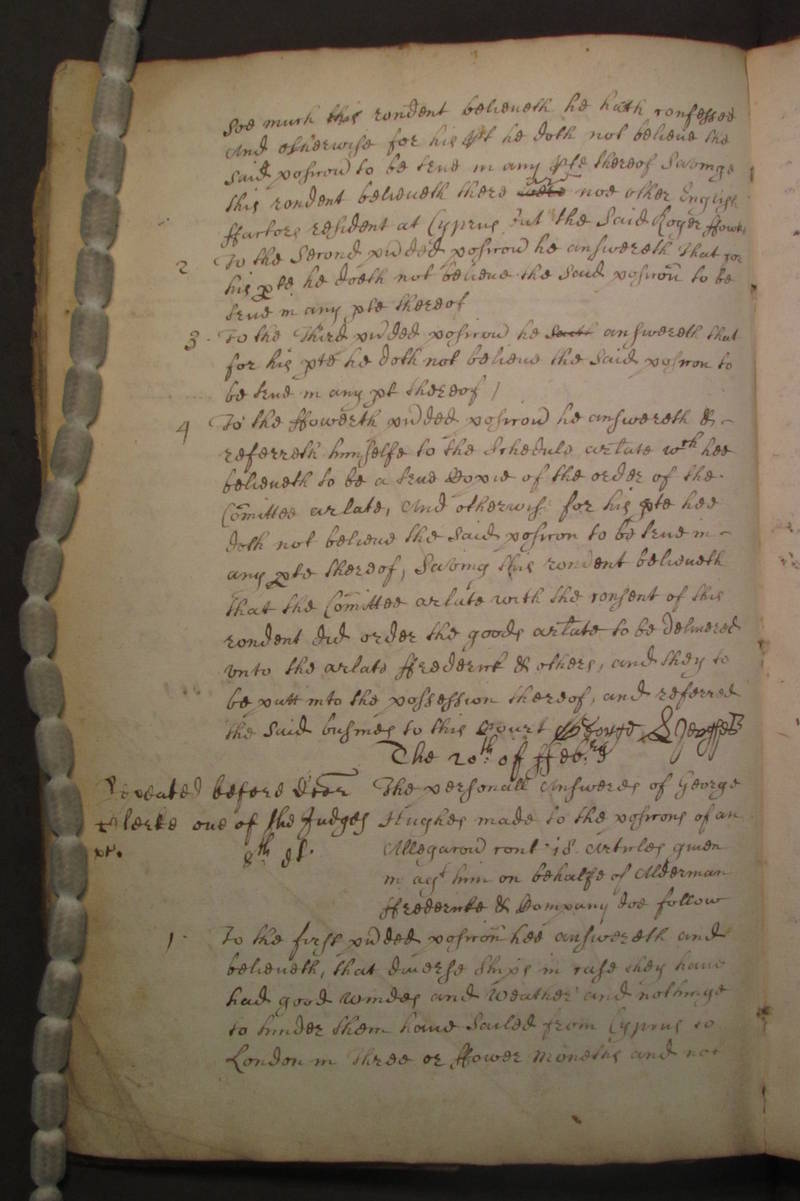 Soe much this rondent believeth he hath confessed
And otherwise for his pt he doth not believe the
said posicon to be true in any pte thereof Savinge
this rondent believeth there were noe other English
ffactors resident at Cyprus but the said Roger ffowke
2 To the Second pvided posicon he answereth That for
his pte he doeth not believe the said posicon to be
true in any pte thereof
3. To the Third pvided posicon he saith answereth that
for his pte he doth not believe the said posicon to
be true in any pt thereof /
4 To the ffowerth pvided posicon he answereth &
referreth himselfe to the Schedule arlate wch hee
believeth to be a true Copie of the order of the
Comittee arlate, And otherwise for his pte hee
doth not believe the said posicon to be true in
any pte thereof, Saving this rondent believeth
that the Comittee arlate with the consent of this
rondent did order the goods arlate to be delivered
vnto the arlate ffrederick & others, and they to
be putt into the possession thereof, and referred
the said busines to this Court George
The 20th of ffebr
Repeated before Dcor The personall Answeres of George
Clerke one of the Judges Hughes made to the posicons of an
Allegacon cont 18 Articles given
in agt him on behalfe of Alderman
ffredericke & Company doe follow
1. To the first pvided posicon hee answereth and
believeth, that diverse Ships in case they have
had good windes and weather and nothinge
to hinder them have Sailed from Cyprus to
London in three or ffower moneths and not